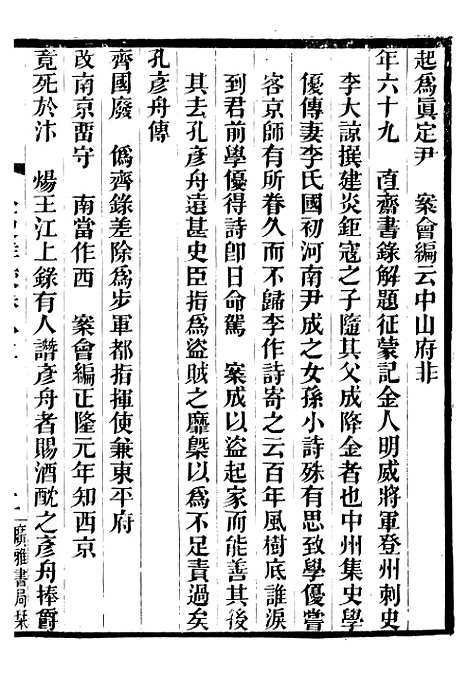 起爲眞定尹　案會編云中山府非
年六十九　直齋書錄解題征蒙記金人明威將軍登州刺史
李大諒撰建炎鉅寇之子隨其父成降金者也中州集史學
優傳妻李氏國初河南尹成之女孫小詩殊有思致學優嘗
客京師有所眷久而不歸李作詩寄之云百年風樹底誰淚
到君前學優得詩卽日命駕　案成以盜起家而能善其後
其去孔彥舟遠甚史臣指爲盜賊之靡槩以爲不足責過矣
孔彥舟傳
齊國廢　僞齊錄差除爲步軍都指揮使兼東平府
改南京畱守　南當作西　案會編正隆元年知西京
竟死於汴　煬王江上錄有人譖彥舟者賜酒酖之彥舟捧爵
廣雅書局栞